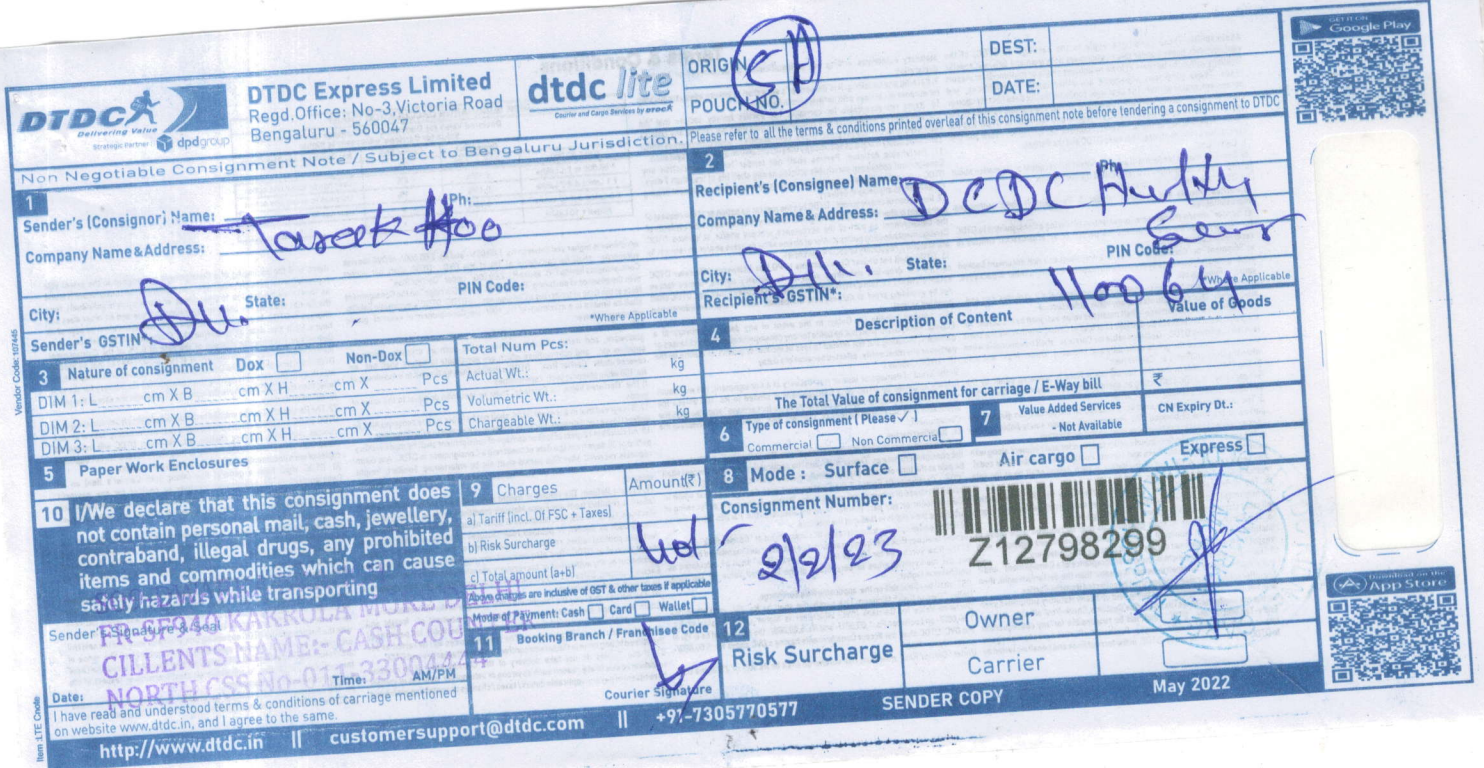 GET IT ON
Google Play
DTDC
Delivering Value
Strategic Partner dpdgroup
DTDC Express Limited
Regd.Office: No-3,Victoria Road
Bengaluru - 560047
dtdc lite
Courier and Cargo Services by DTDC
ORIGIN
DEST:
POUCH NO.
DATE:
Non Negotiable Consignment Note / Subject to Bengaluru Jurisdiction.
Please refer to all the terms & conditions printed overleaf of this consignment note before tendering a consignment to DTDC
1
Sender's (Consignor) Name: Ph:
Company Name&Address:
City: State: PIN Code:
Sender's GSTIN*: *Where Applicable
2
Recipient's (Consignee) Name: Ph:
Company Name & Address: DCDC
City: State: PIN Code:
Recipient's GSTIN*: *Where Applicable
3 Nature of consignment Dox Non-Dox
DIM 1: L cm X B cm X H cm X Pcs
DIM 2: L cm X B cm X H cm X Pcs
DIM 3: L cm X B cm X H cm X Pcs
Total Num Pcs:
Actual Wt.: kg
Volumetric Wt.: kg
Chargeable Wt.: kg
4 Description of Content Value of Goods
The Total Value of consignment for carriage / E-Way bill ₹
5 Paper Work Enclosures
6 Type of consignment ( Please ✓ )
Commercial Non Commercial
7 Value Added Services
- Not Available
CN Expiry Dt.:
8 Mode : Surface Air cargo Express
Consignment Number:
2/2/23
Z12798299
9 Charges Amount(₹)
a) Tariff (incl. Of FSC + Taxes)
b) Risk Surcharge
c) Total amount (a+b)
Above charges are inclusive of GST & other taxes if applicable
Mode of Payment: Cash Card Wallet
10 I/We declare that this consignment does
not contain personal mail, cash, jewellery,
contraband, illegal drugs, any prohibited
items and commodities which can cause
safety hazards while transporting
FR-SF940 KAKROLA MORE DELHI
Sender's Signature & Seal
CILLENTS NAME:- CASH COUNTER
NORTH CSS No-011-33004444
Date: Time: AM/PM
I have read and understood terms & conditions of carriage mentioned
on website www.dtdc.in, and I agree to the same.
11 Booking Branch / Franchisee Code
Courier Signature
12
Risk Surcharge
Owner
Carrier
Download on the
App Store
http://www.dtdc.in || customersupport@dtdc.com || +91-7305770577 SENDER COPY May 2022
Vendor Code: 107445
Item :LTE Cnote